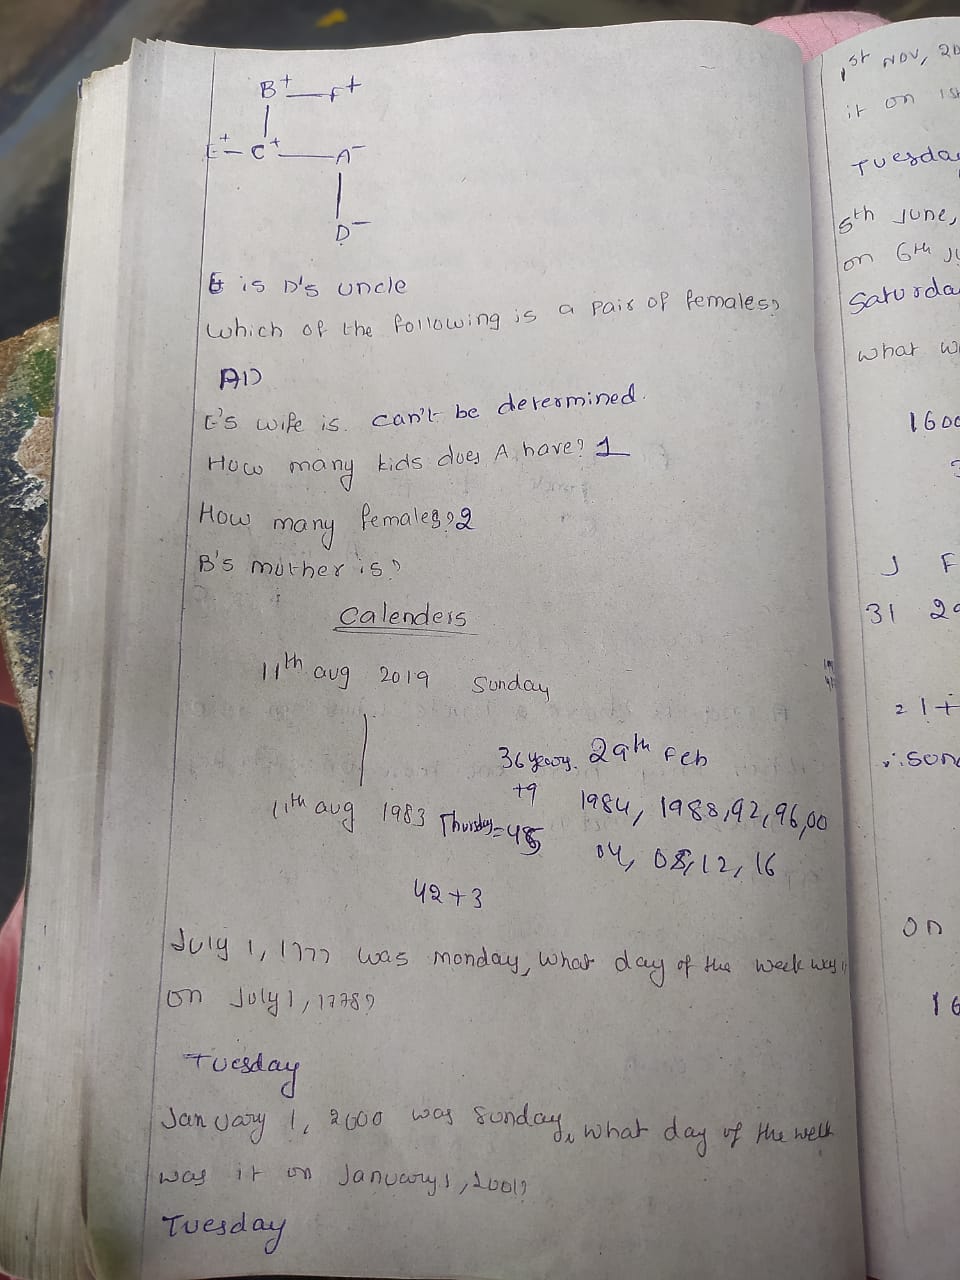 B+ — F+
E+ – C+ — A-
D-
E is D's uncle
Which of the following is a pair of females?
AD
E's wife is. can't be determined.
How many kids does A have? 1
How many females? 2
B's mother is?
Calenders
11th aug 2019 Sunday
36 years. 29th Feb
+9 1984, 1988, 92, 96, 00
11th aug 1983 Thursday = 45
04, 08, 12, 16
42 + 3
July 1, 1777 was monday, what day of the week was
on July 1, 1778?
Tuesday
January 1, 2000 was Sunday, what day of the week
was it on January 1, 2001?
Tuesday
1st NOV, 20
it on 1st
Tuesda
5th June,
on 6th Ju
Saturda
what w
1600
J F
31 29
= 1 +
∴ Son
on
16